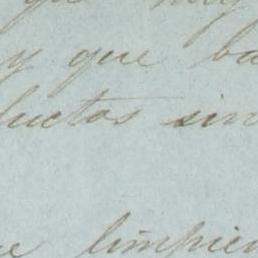 que muy
y que ba
ductos sin
ue limpien